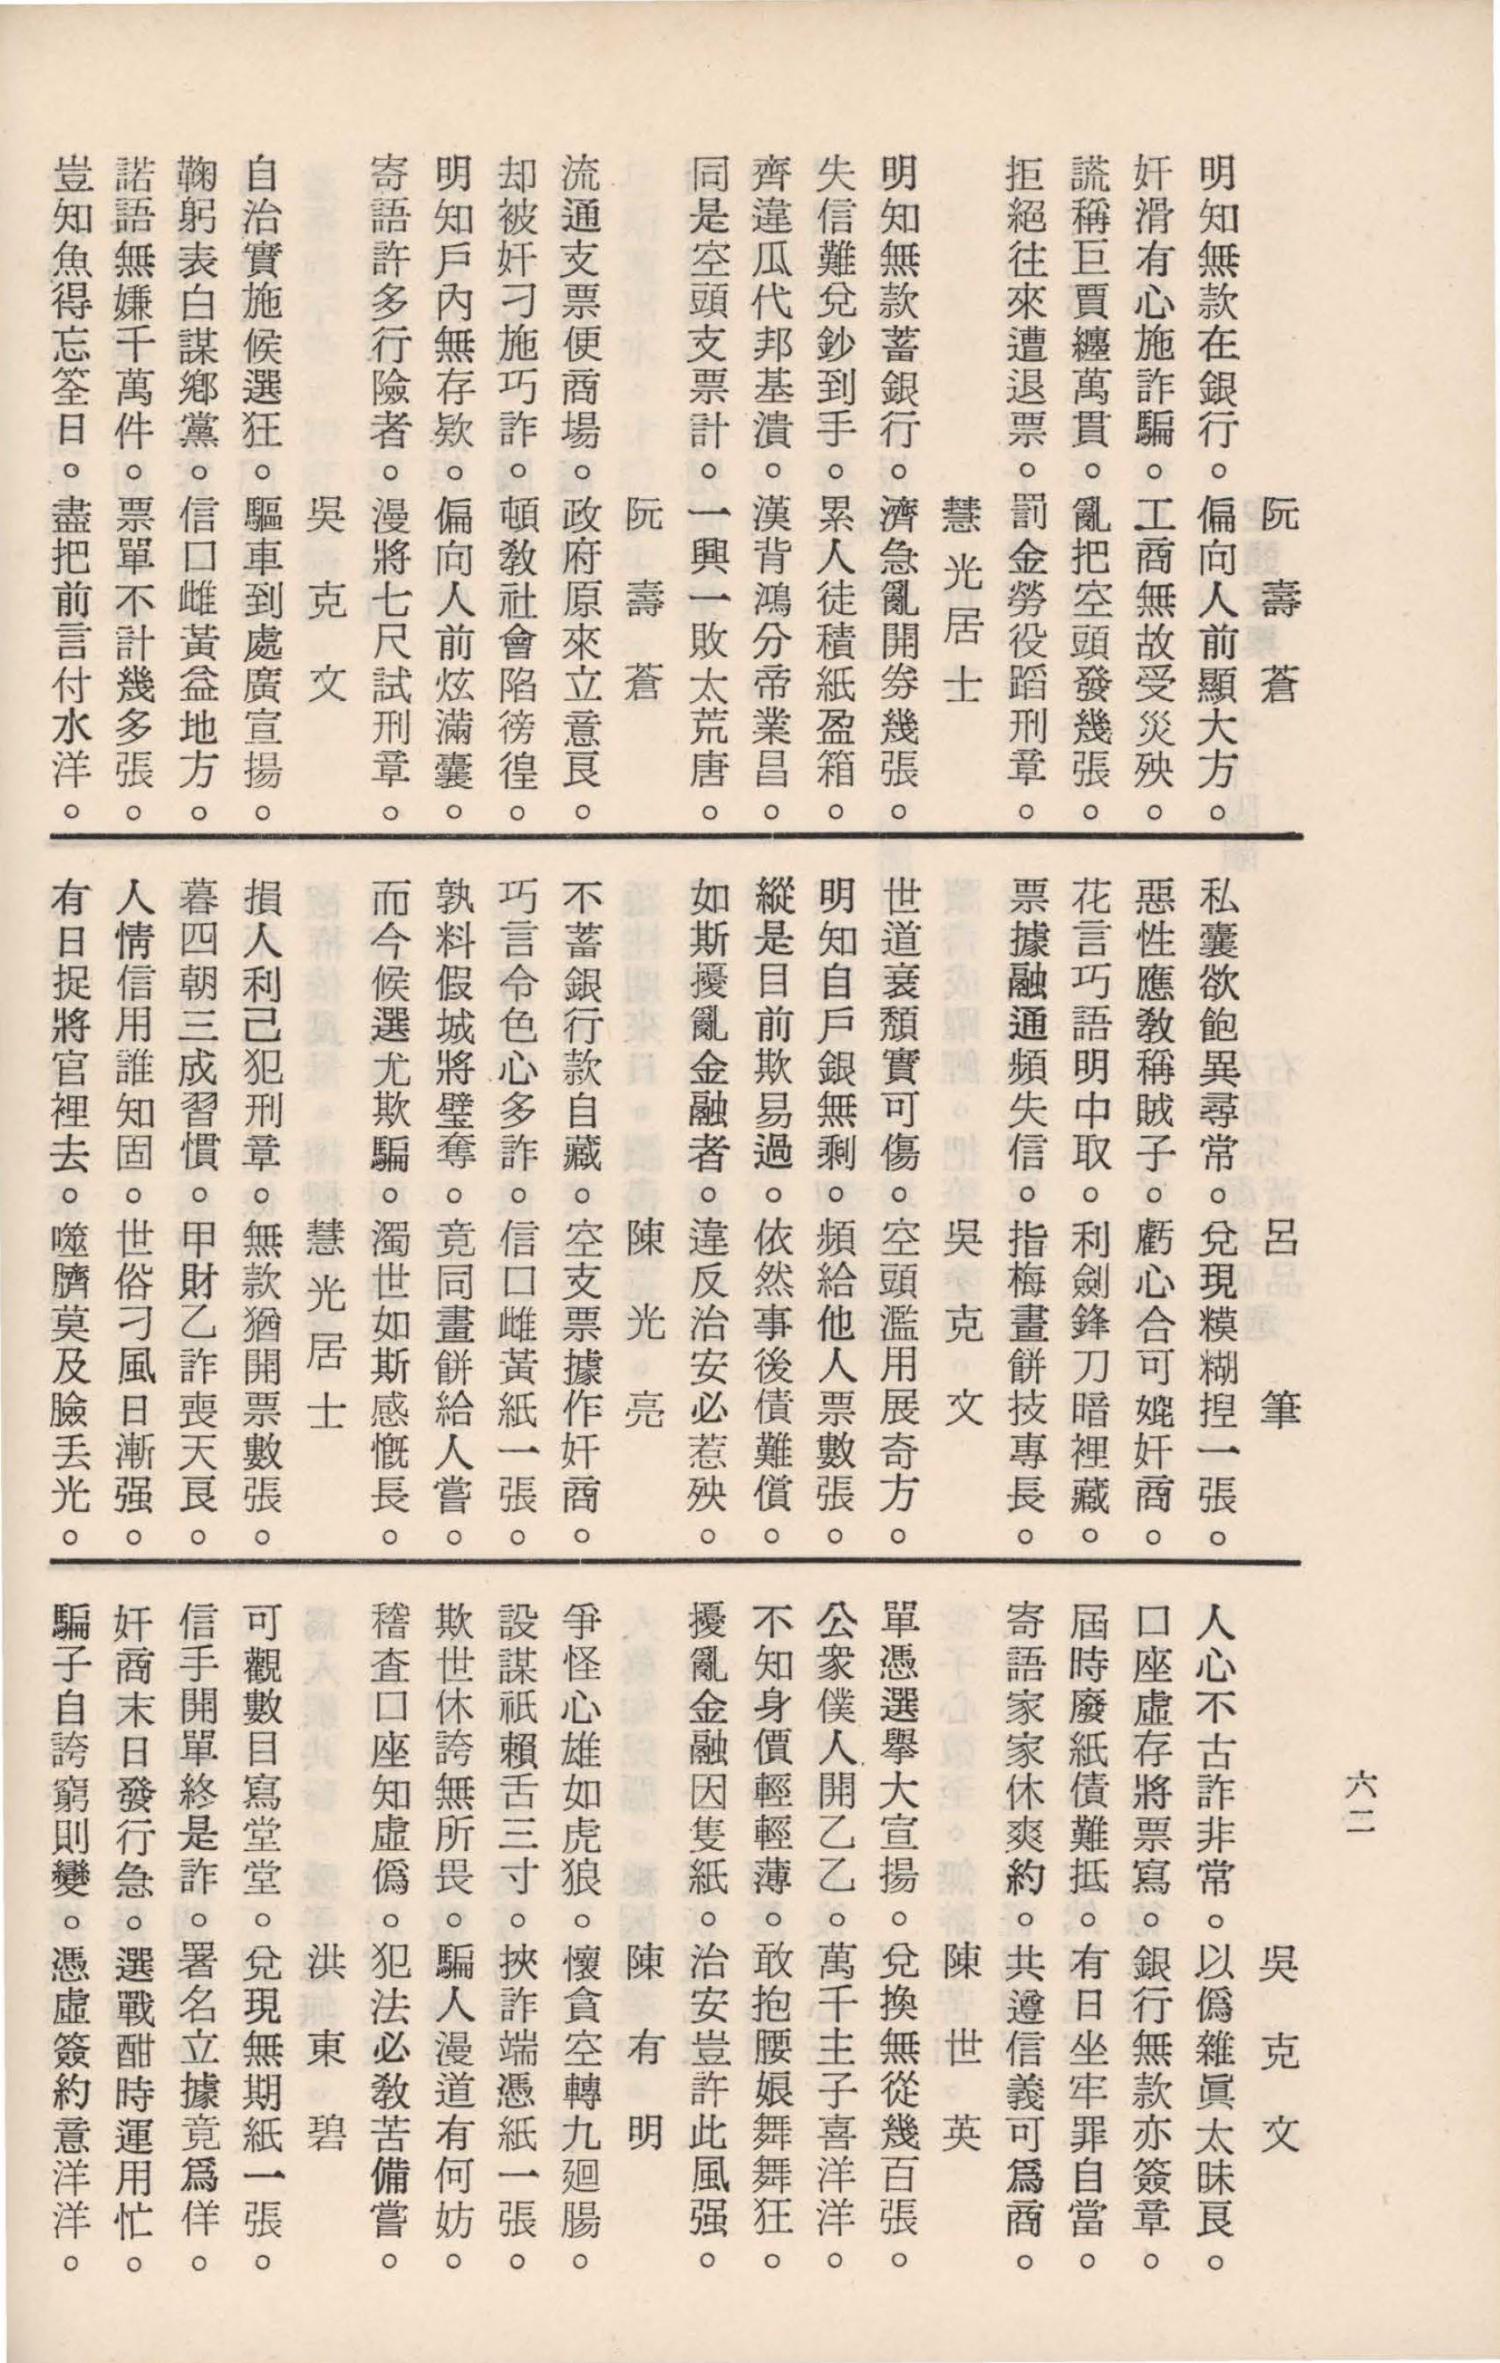 阮壽蒼
明知無款在銀行。偏向人前顯大方。
奸滑有心施詐騙。工商無故受災殃。
謊稱巨賈纏萬貫。亂把空頭發幾張。
拒絕往來遭退票。罰金勞役蹈刑章。
慧光居士
明知無款蓄銀行。濟急亂開券幾張。
失信難兌鈔到手。累人徒積紙盈箱。
齊違瓜代邦基潰。漢背鴻分帝業昌。
同是空頭支票計。一興一敗太荒唐。
阮壽蒼
流通支票便商場。政府原來立意良。
却被奸刁施巧詐。頓教社會陷徬徨。
明知戶內無存欵。偏向人前炫滿囊。
寄語許多行險者。漫將七尺試刑章。
吳克文
自治實施候選狂。驅車到處廣宣揚。
鞠躬表白謀鄉黨。信口雌黃益地方。
諾語無嫌千萬件。票單不計幾多張。
豈知魚得忘筌日。盡把前言付水洋。
呂筆
私囊欲飽異尋常。兌現糢糊揑一張。
惡性應教稱賊子。虧心合可媲奸商。
花言巧語明中取。利劍鋒刀暗裡藏。
票據融通頻失信。指梅畫餅技專長。
吳克文
世道衰頹實可傷。空頭濫用展奇方。
明知自戶銀無剩。頻給他人票數張。
縱是目前欺易過。依然事後債難償。
如斯擾亂金融者。違反治安必惹殃。
陳光亮
不蓄銀行款自藏。空支票據作奸商。
巧言令色心多詐。信口雌黃紙一張。
孰料假城將璧奪。竟同畫餅給人嘗。
而今候選尤欺騙。濁世如斯感慨長。
慧光居士
損人利己犯刑章。無款猶開票數張。
暮四朝三成習慣。甲財乙詐喪天良。
人情信用誰知固。世俗刁風日漸强。
有日捉將官裡去。噬臍莫及臉丟光。
吳克文
人心不古詐非常。以僞雜眞太昧良。
口座虛存將票寫。銀行無款亦簽章。
屆時廢紙債難抵。有日坐牢罪自當。
寄語家家休爽約。共遵信義可爲商。
陳世英
單憑選舉大宣揚。兌換無從幾百張。
公衆僕人開乙乙。萬千主子喜洋洋。
不知身價輕輕薄。敢抱腰娘舞舞狂。
擾亂金融因隻紙。治安豈許此風强。
陳有明
爭怪心雄如虎狼。懷貪空轉九廻腸。
設謀祇賴舌三寸。挾詐端憑紙一張。
欺世休誇無所畏。騙人漫道有何妨。
稽查口座知虛僞。犯法必教苦備嘗。
洪東碧
可觀數目寫堂堂。兌現無期紙一張。
信手開單終是詐。署名立據竟爲佯。
奸商末日發行急。選戰酣時運用忙。
騙子自誇窮則變。憑虛簽約意洋洋。
六二